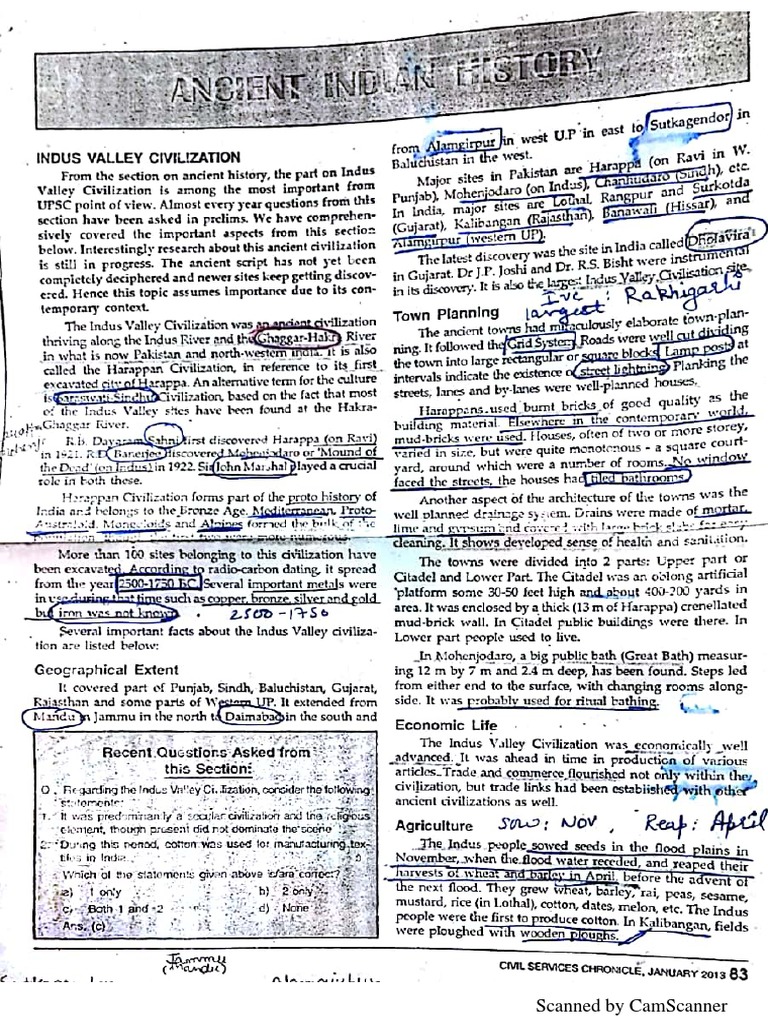 ANCIENT INDIAN HISTORY
INDUS VALLEY CIVILIZATION
From the section on ancient history, the part on Indus
Valley Civilization is among the most important from
UPSC point of view. Almost every year questions from this
section have been asked in prelims. We have comprehen-
sively covered the important aspects from this section
below. Interestingly research about this ancient civilization
is still in progress. The ancient script has not yet been
completely deciphered and newer sites keep getting discov-
ered. Hence this topic assumes importance due to its con-
temporary context.
The Indus Valley Civilization was an ancient civilization
thriving along the Indus River and the Ghaggar-Hakr River
in what is now Pakistan and north-western India. It is also
called the Harappan Civilization, in reference to its first
excavated city of Harappa. An alternative term for the culture
is Saraswati-Sindhu Civilization, based on the fact that most
of the Indus Valley sites have been found at the Hakra-
Ghaggar River.
R.b. Dayaram Sahni first discovered Harappa (on Ravi)
in 1921. R.D Banerjee discovered Mohenjodaro or 'Mound of
the Dead' (on Indus) in 1922. Sir John Marshal played a crucial
role in both these.
Harappan Civilization forms part of the proto history of
India and belongs to the Bronze Age. Mediterranean, Proto-
Australoid, Mongoloids and Alpines formed the bulk of the
More than 100 sites belonging to this civilization have
been excavated. According to radio-carbon dating, it spread
from the year 2500-1750 BC. Several important metals were
in use during that time such as copper, bronze, silver and gold
but iron was not known. 2500-1750
Several important facts about the Indus Valley civiliza-
tion are listed below:
Geographical Extent
It covered part of Punjab, Sindh, Baluchistan, Gujarat,
Rajasthan and some parts of Western UP. It extended from
Mandu in Jammu in the north to Daimabad in the south and
Recent Questions Asked from
this Section:
Q. Regarding the Indus Valley Civilization, consider the following
statements:
1. It was predominantly a secular civilization and the religious
element, though present did not dominate the scene
2. During this period, cotton was used for manufacturing tex-
tiles in India.
Which of the statements given above is/are correct?
a) 1 only b) 2 only
c) Both 1 and 2 d) None
Ans. (c)
Jammu
(Mandu)
from Alamgirpur in west U.P in east to Sutkagendor in
Baluchistan in the west.
Major sites in Pakistan are Harappa (on Ravi in W.
Punjab), Mohenjodaro (on Indus), Chanhudaro (Sindh), etc.
In India, major sites are Lothal, Rangpur and Surkotda
(Gujarat), Kalibangan (Rajasthan), Banawali (Hissar), and
Alamgirpur (western UP).
The latest discovery was the site in India called Dholavira
in Gujarat. Dr J.P. Joshi and Dr. R.S. Bisht were instrumental
in its discovery. It is also the largest Indus Valley Civilisation site.
IVC largest : Rakhigarhi
Town Planning
The ancient towns had miraculously elaborate town-plan-
ning. It followed the Grid System. Roads were well cut dividing
the town into large rectangular or square blocks. Lamp posts at
intervals indicate the existence of street lightning. Planking the
streets, lanes and by-lanes were well-planned houses.
Harappans used burnt bricks of good quality as the
building material. Elsewhere in the contemporary world,
mud-bricks were used. Houses, often of two or more storey,
varied in size, but were quite monotonous - a square court-
yard, around which were a number of rooms. No window
faced the streets, the houses had tiled bathrooms.
Another aspect of the architecture of the towns was the
well planned drainage system. Drains were made of mortar,
lime and gypsum and covered with large brick slabs for easy
cleaning. It shows developed sense of health and sanitation.
The towns were divided into 2 parts: Upper part or
Citadel and Lower Part. The Citadel was an oblong artificial
platform some 30-50 feet high and about 400-200 yards in
area. It was enclosed by a thick (13 m of Harappa) crenellated
mud-brick wall. In Citadel public buildings were there. In
Lower part people used to live.
In Mohenjodaro, a big public bath (Great Bath) measur-
ing 12 m by 7 m and 2.4 m deep, has been found. Steps led
from either end to the surface, with changing rooms along-
side. It was probably used for ritual bathing.
Economic Life
The Indus Valley Civilization was economically well
advanced. It was ahead in time in production of various
articles. Trade and commerce flourished not only within the
civilization, but trade links had been established with other
ancient civilizations as well.
Agriculture Sow: Nov, Reap: April
The Indus people sowed seeds in the flood plains in
November, when the flood water receded, and reaped their
harvests of wheat and barley in April, before the advent of
the next flood. They grew wheat, barley, rai, peas, sesame,
mustard, rice (in Lothal), cotton, dates, melon, etc. The Indus
people were the first to produce cotton. In Kalibangan, fields
were ploughed with wooden ploughs.
CIVIL SERVICES CHRONICLE, JANUARY 2013 83
Scanned by CamScanner